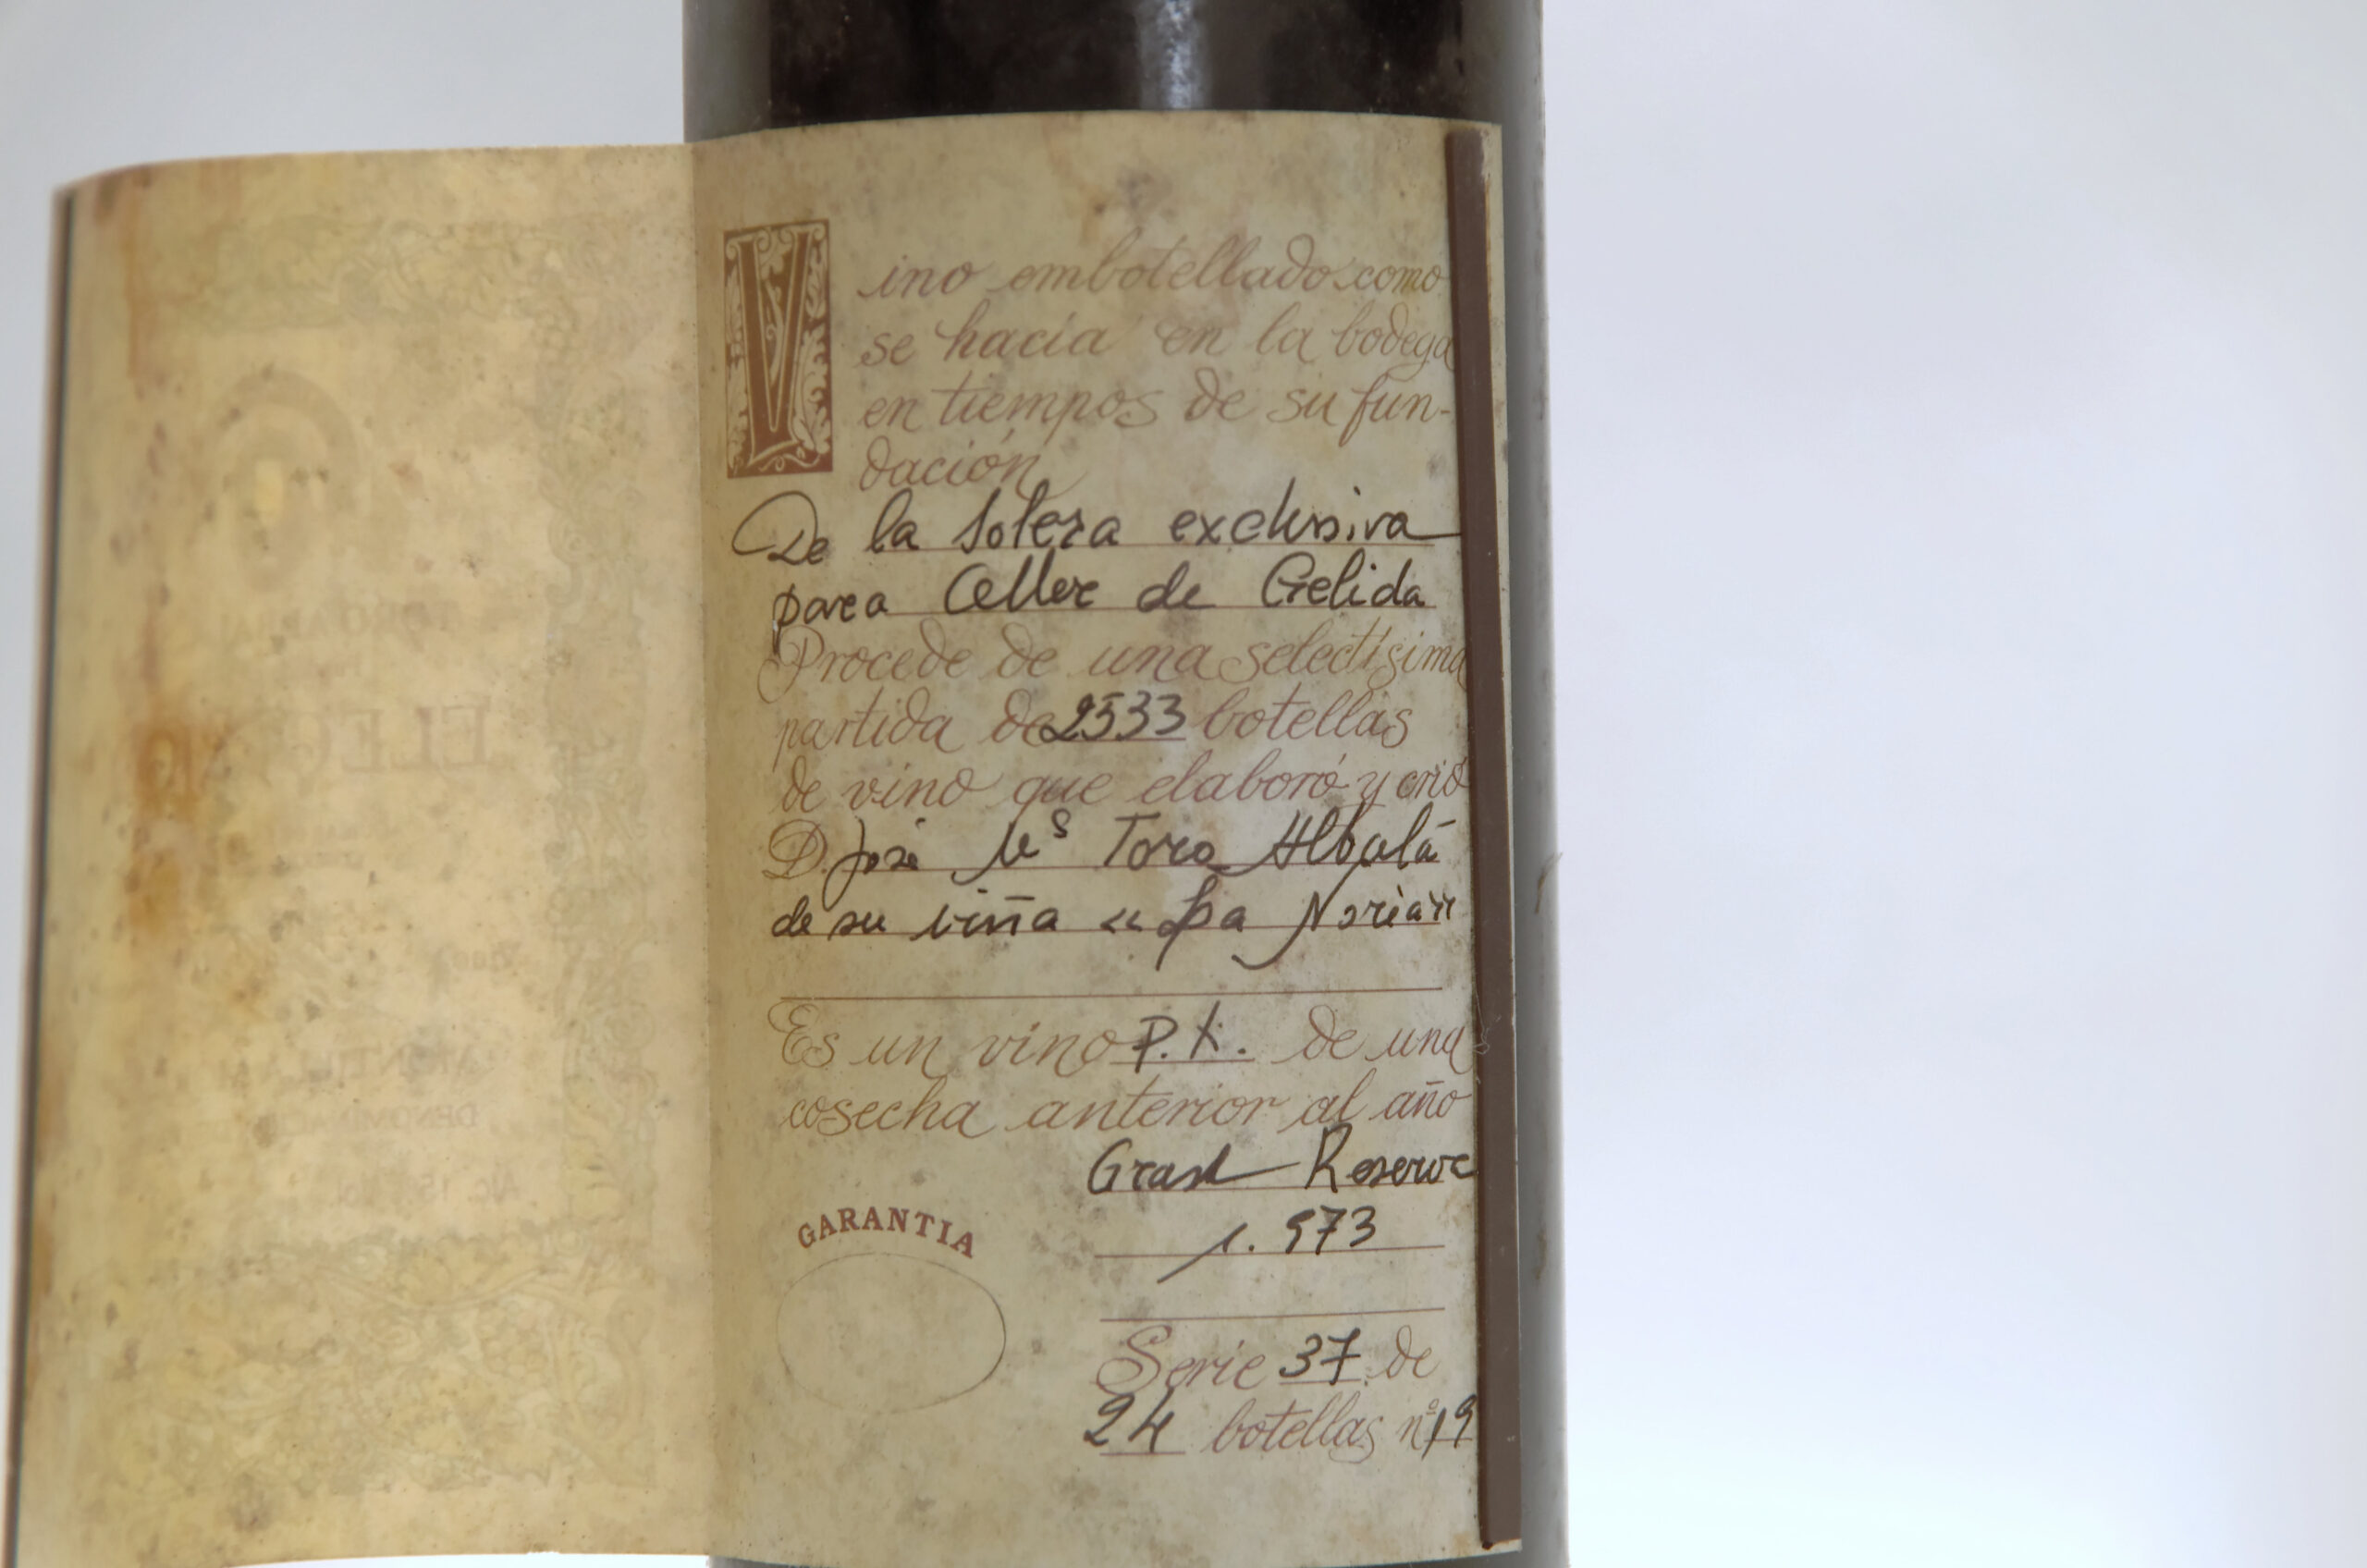 Vino embotellado como
se hacía en la bodega
en tiempos de su fun-
dación
De la Solera exclusiva
para Celler de Gelida
Procede de una selectísima
partida de 2533 botellas
de vino que elaboró y crió
D. José Mª Toro Albalá
de su viña "La Noria"
Es un vino P.X. de una
cosecha anterior al año
Gran Reserva
1.973
GARANTIA
Serie 37 de
24 botellas nº 19